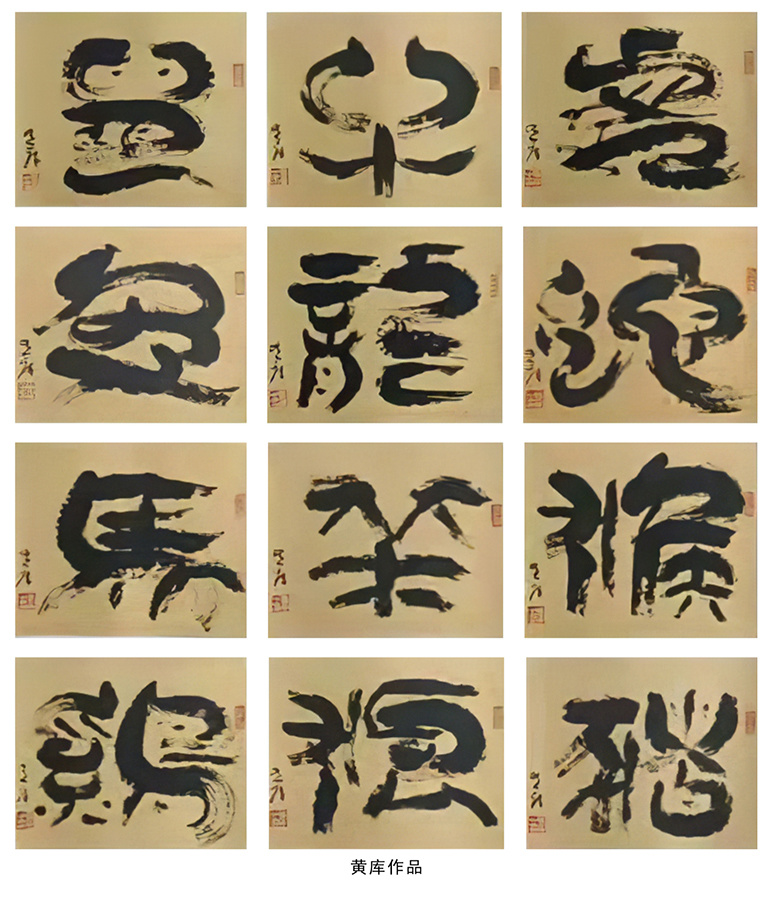 鼠 牛 虎
兔 龍 蛇
馬 羊 猴
鷄 狗 豬
黄库作品